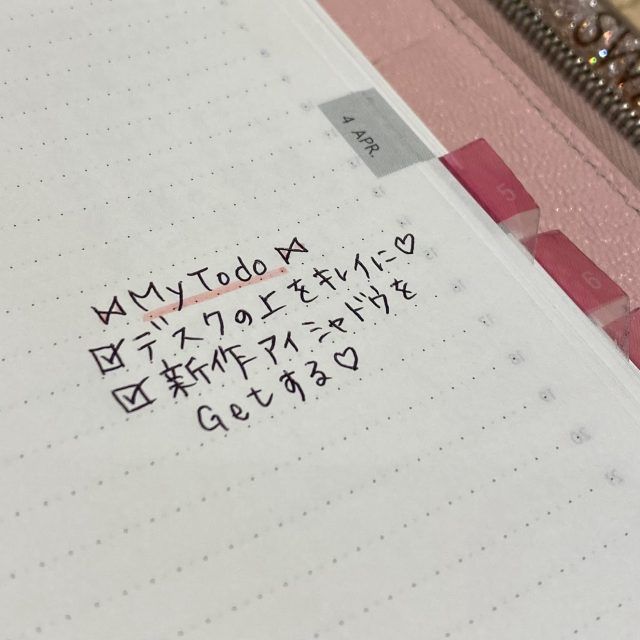 4 APR.
5
6
My Todo
☑デスクの上をキレイに♡
☑新作アイシャドウを
Getする♡